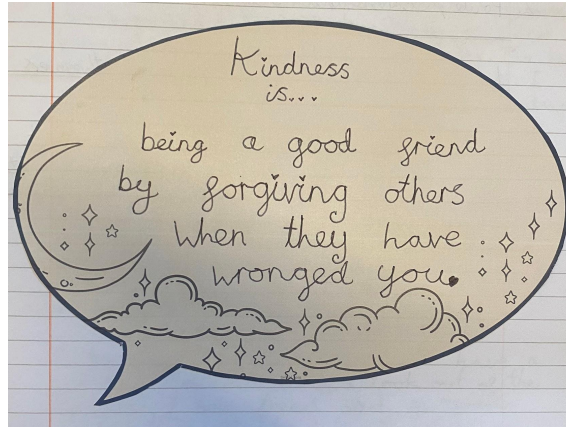 Kindness
is...
being a good friend
by forgiving others
when they have
wronged you.